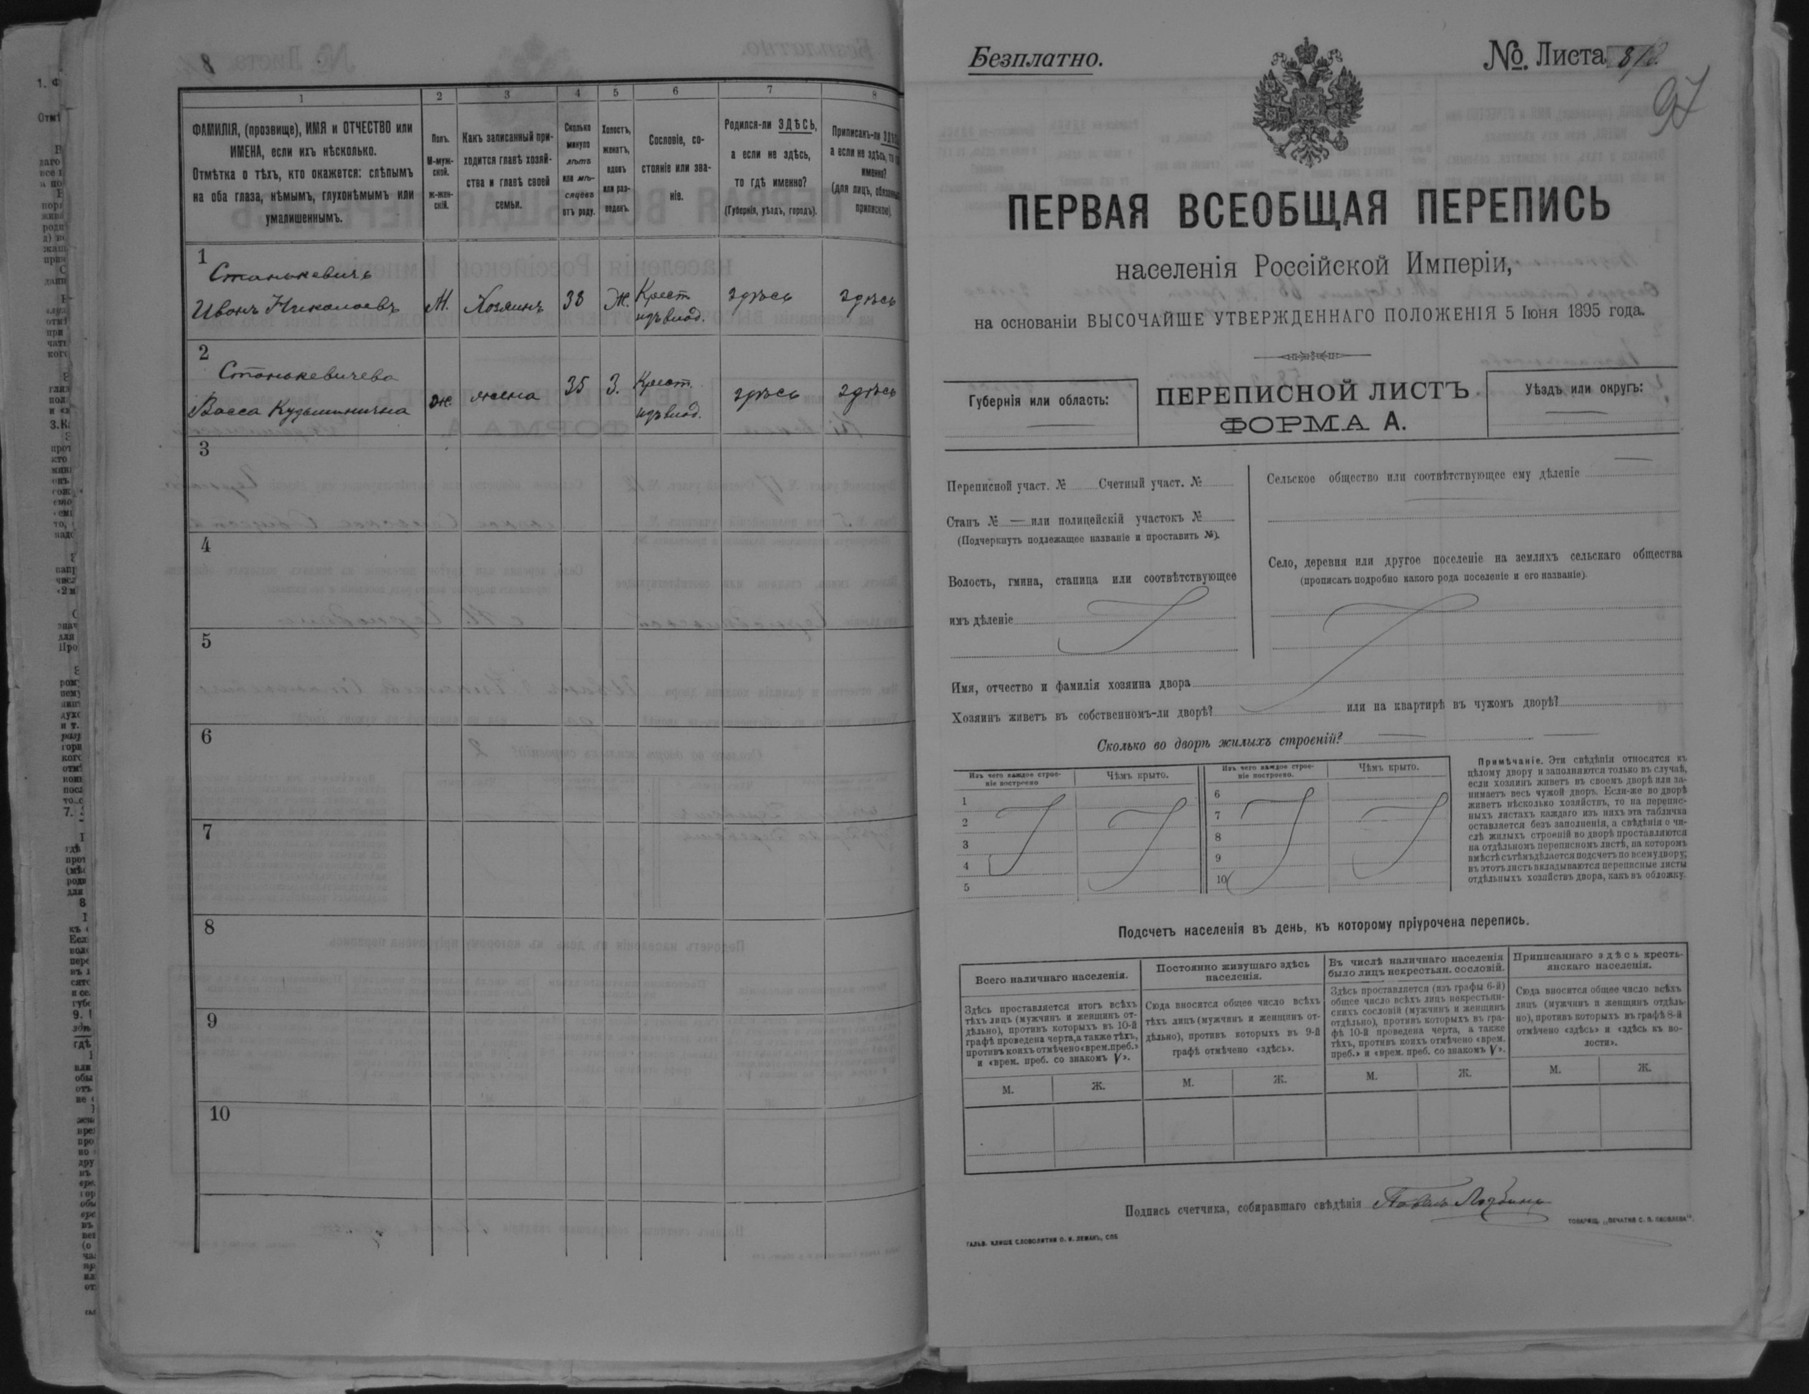 8
1
2
3
4
5
6
7
8
ФАМИЛІЯ, (прозвище), ИМЯ и ОТЧЕСТВО или
ИМЕНА, если ихъ нѣсколько.
Отмѣтка о тѣхъ, кто окажется: слѣпымъ
на оба глаза, нѣмымъ, глухонѣмымъ или
умалишеннымъ.
Полъ.
М-муж-
ской.
ж-жен-
скій.
Какъ записанный при-
ходится главѣ хозяй-
ства и главѣ своей
семьи.
Сколько
минуло
лѣтъ
или мѣ-
сяцевъ
отъ роду.
Холостъ,
женатъ,
вдовъ
или раз-
веденъ.
Сословіе, со-
стояніе или зва-
ніе.
Родился-ли ЗДѢСЬ,
а если не здѣсь,
то гдѣ именно?
(Губернія, уѣздъ, городъ).
Приписанъ-ли
а если не здѣсь, то
именно?
(для лицъ,
1
Станькевичъ
Иванъ Николаевъ
М.
Хозяинъ
38
Ж.
Крест.
здѣсь
здѣсь
2
Станькевичева
Васса Кузьминична
ж.
жена
35
З.
Крест.
здѣсь
здѣсь
3
4
5
6
7
8
9
10
Безплатно.
№ Листа
97
ПЕРВАЯ ВСЕОБЩАЯ ПЕРЕПИСЬ
населенія Россійской Имперіи,
на основаніи ВЫСОЧАЙШЕ УТВЕРЖДЕННАГО ПОЛОЖЕНІЯ 5 Іюня 1895 года.
Губернія или область:
ПЕРЕПИСНОЙ ЛИСТЪ
ФОРМА А.
Уѣздъ или округъ:
Переписной участ. № Счетный участ. №
Станъ № — или полицейскій участокъ №
(Подчеркнуть подлежащее названіе и проставить №).
Волость, гмина, станица или соотвѣтствующее
имъ дѣленіе
Сельское общество или соотвѣтствующее ему дѣленіе
Село, деревня или другое поселеніе на земляхъ сельскаго общества
(прописать подробно какого рода поселеніе и его названіе).
Имя, отчество и фамилія хозяина двора
Хозяинъ живетъ въ собственномъ-ли дворѣ? или на квартирѣ въ чужомъ дворѣ?
Сколько во дворѣ жилыхъ строеній?
Изъ чего каждое строе-
ніе построено
Чѣмъ крыто.
Изъ чего каждое строе-
ніе построено.
Чѣмъ крыто.
1
2
3
4
5
6
7
8
9
10
Примѣчаніе. Эти свѣдѣнія относятся къ
цѣлому двору и заполняются только въ случаѣ,
если хозяинъ живетъ въ своемъ дворѣ или за-
нимаетъ весь чужой дворъ. Если-же во дворѣ
живетъ нѣсколько хозяйствъ, то на перепис-
ныхъ листахъ каждаго изъ нихъ эта табличка
оставляется безъ заполненія, а свѣдѣнія о чи-
слѣ жилыхъ строеній во дворѣ проставляются
на отдѣльномъ переписномъ листѣ, на которомъ
вмѣстѣ съ тѣмъ дѣлается подсчетъ по всему двору;
въ этотъ листъ вкладываются переписные листы
отдѣльныхъ хозяйствъ двора, какъ въ обложку.
Подсчетъ населенія въ день, къ которому пріурочена перепись.
Всего наличнаго населенія.
Постоянно живущаго здѣсь
населенія.
Въ числѣ наличнаго населенія
было лицъ некрестьян. сословій.
Приписаннаго здѣсь кресть-
янскаго населенія.
Здѣсь проставляется итогъ всѣхъ
тѣхъ лицъ (мужчинъ и женщинъ от-
дѣльно), противъ которыхъ въ 10-й
графѣ проведена черта, а также тѣхъ,
противъ коихъ отмѣчено «врем. преб.»
и «врем. преб. со знакомъ V».
Сюда вносится общее число всѣхъ
тѣхъ лицъ (мужчинъ и женщинъ от-
дѣльно), противъ которыхъ въ 9-й
графѣ отмѣчено «здѣсь».
Здѣсь проставляется (изъ графы 6-й)
общее число всѣхъ лицъ некрестьян-
скихъ сословій (мужчинъ и женщинъ
отдѣльно), противъ которыхъ въ гра-
фѣ 10-й проведена черта, а также
тѣхъ, противъ коихъ отмѣчено «врем.
преб.» и «врем. преб. со знакомъ V».
Сюда вносится общее число всѣхъ
лицъ (мужчинъ и женщинъ отдѣль-
но), противъ которыхъ въ графѣ 8-й
отмѣчено «здѣсь» и «здѣсь къ во-
лости».
М. Ж. М. Ж. М. Ж. М. Ж.
Подпись счетчика, собиравшаго свѣдѣнія
ТОВАРИЩ. „ПЕЧАТНЯ С. П. ЯКОВЛЕВА“.
ГАЛЬВ. КЛИШЕ СЛОВОЛИТНИ О. И. ЛЕМАНЪ, СПБ.